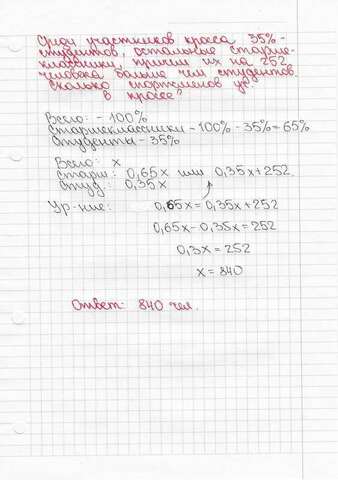 Среди участников кросса 35% -
студентов, остальные старше-
классники, причём их на 252
человека больше чем студентов.
Сколько спортсменов уч.
в кроссе?
Всего: - 100%
Старшеклассники - 100% - 35% = 65%
Студенты - 35%
Всего: x
Старш: 0,65x или 0,35x+252.
Студ: 0,35x
Ур-ние: 0,65x = 0,35x + 252
0,65x - 0,35x = 252
0,3x = 252
x = 840
Ответ: 840 чел.